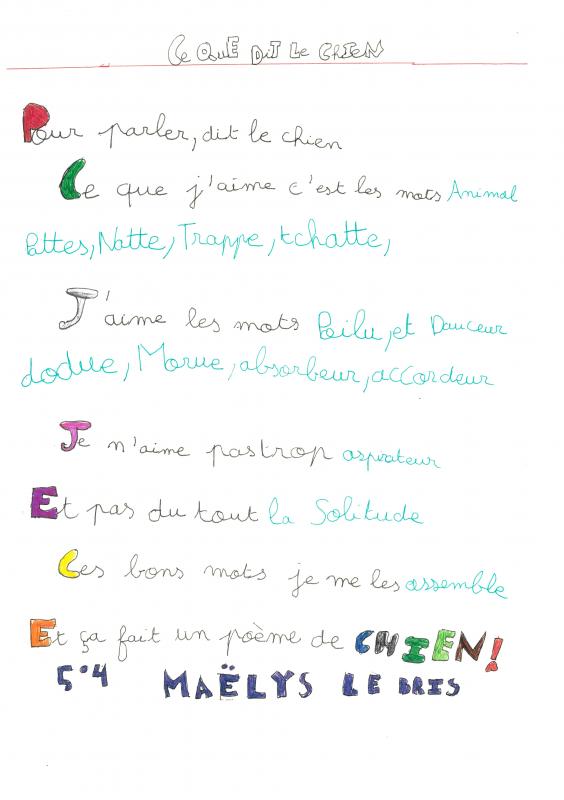 Ce QuE DiT Le CHIEN
Pour parler, dit le chien
Ce que j'aime c'est les mots Animal
Pattes, Natte, Trappe, tchatte,
J'aime les mots Poilu, et Douceur
dodue, Morue, absorbeur, accordeur
Je n'aime pas trop aspirateur
Et pas du tout la Solitude
Ces bons mots je me les assemble
Et ça fait un poème de CHIEN!
5°4 MAËLYS LE BRIS